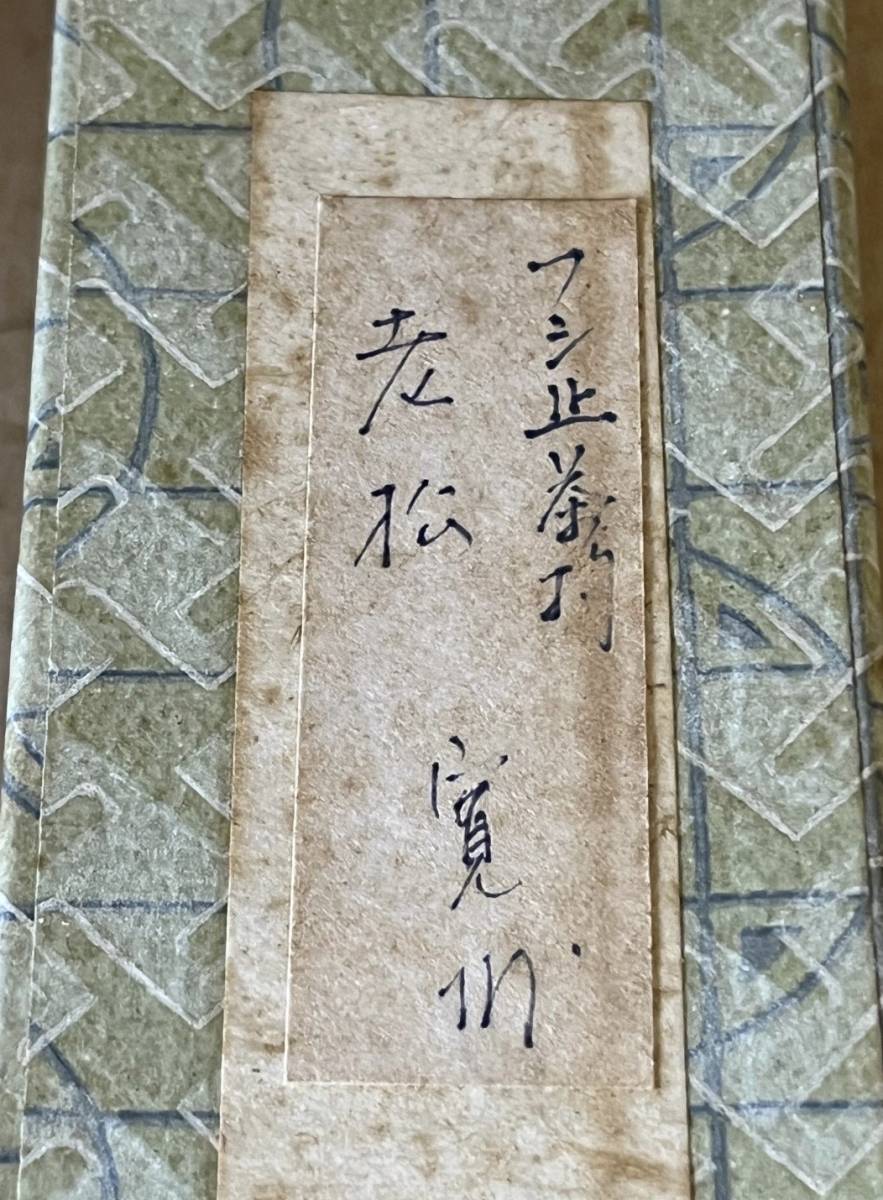 フシ止茶杓
老松
寛州